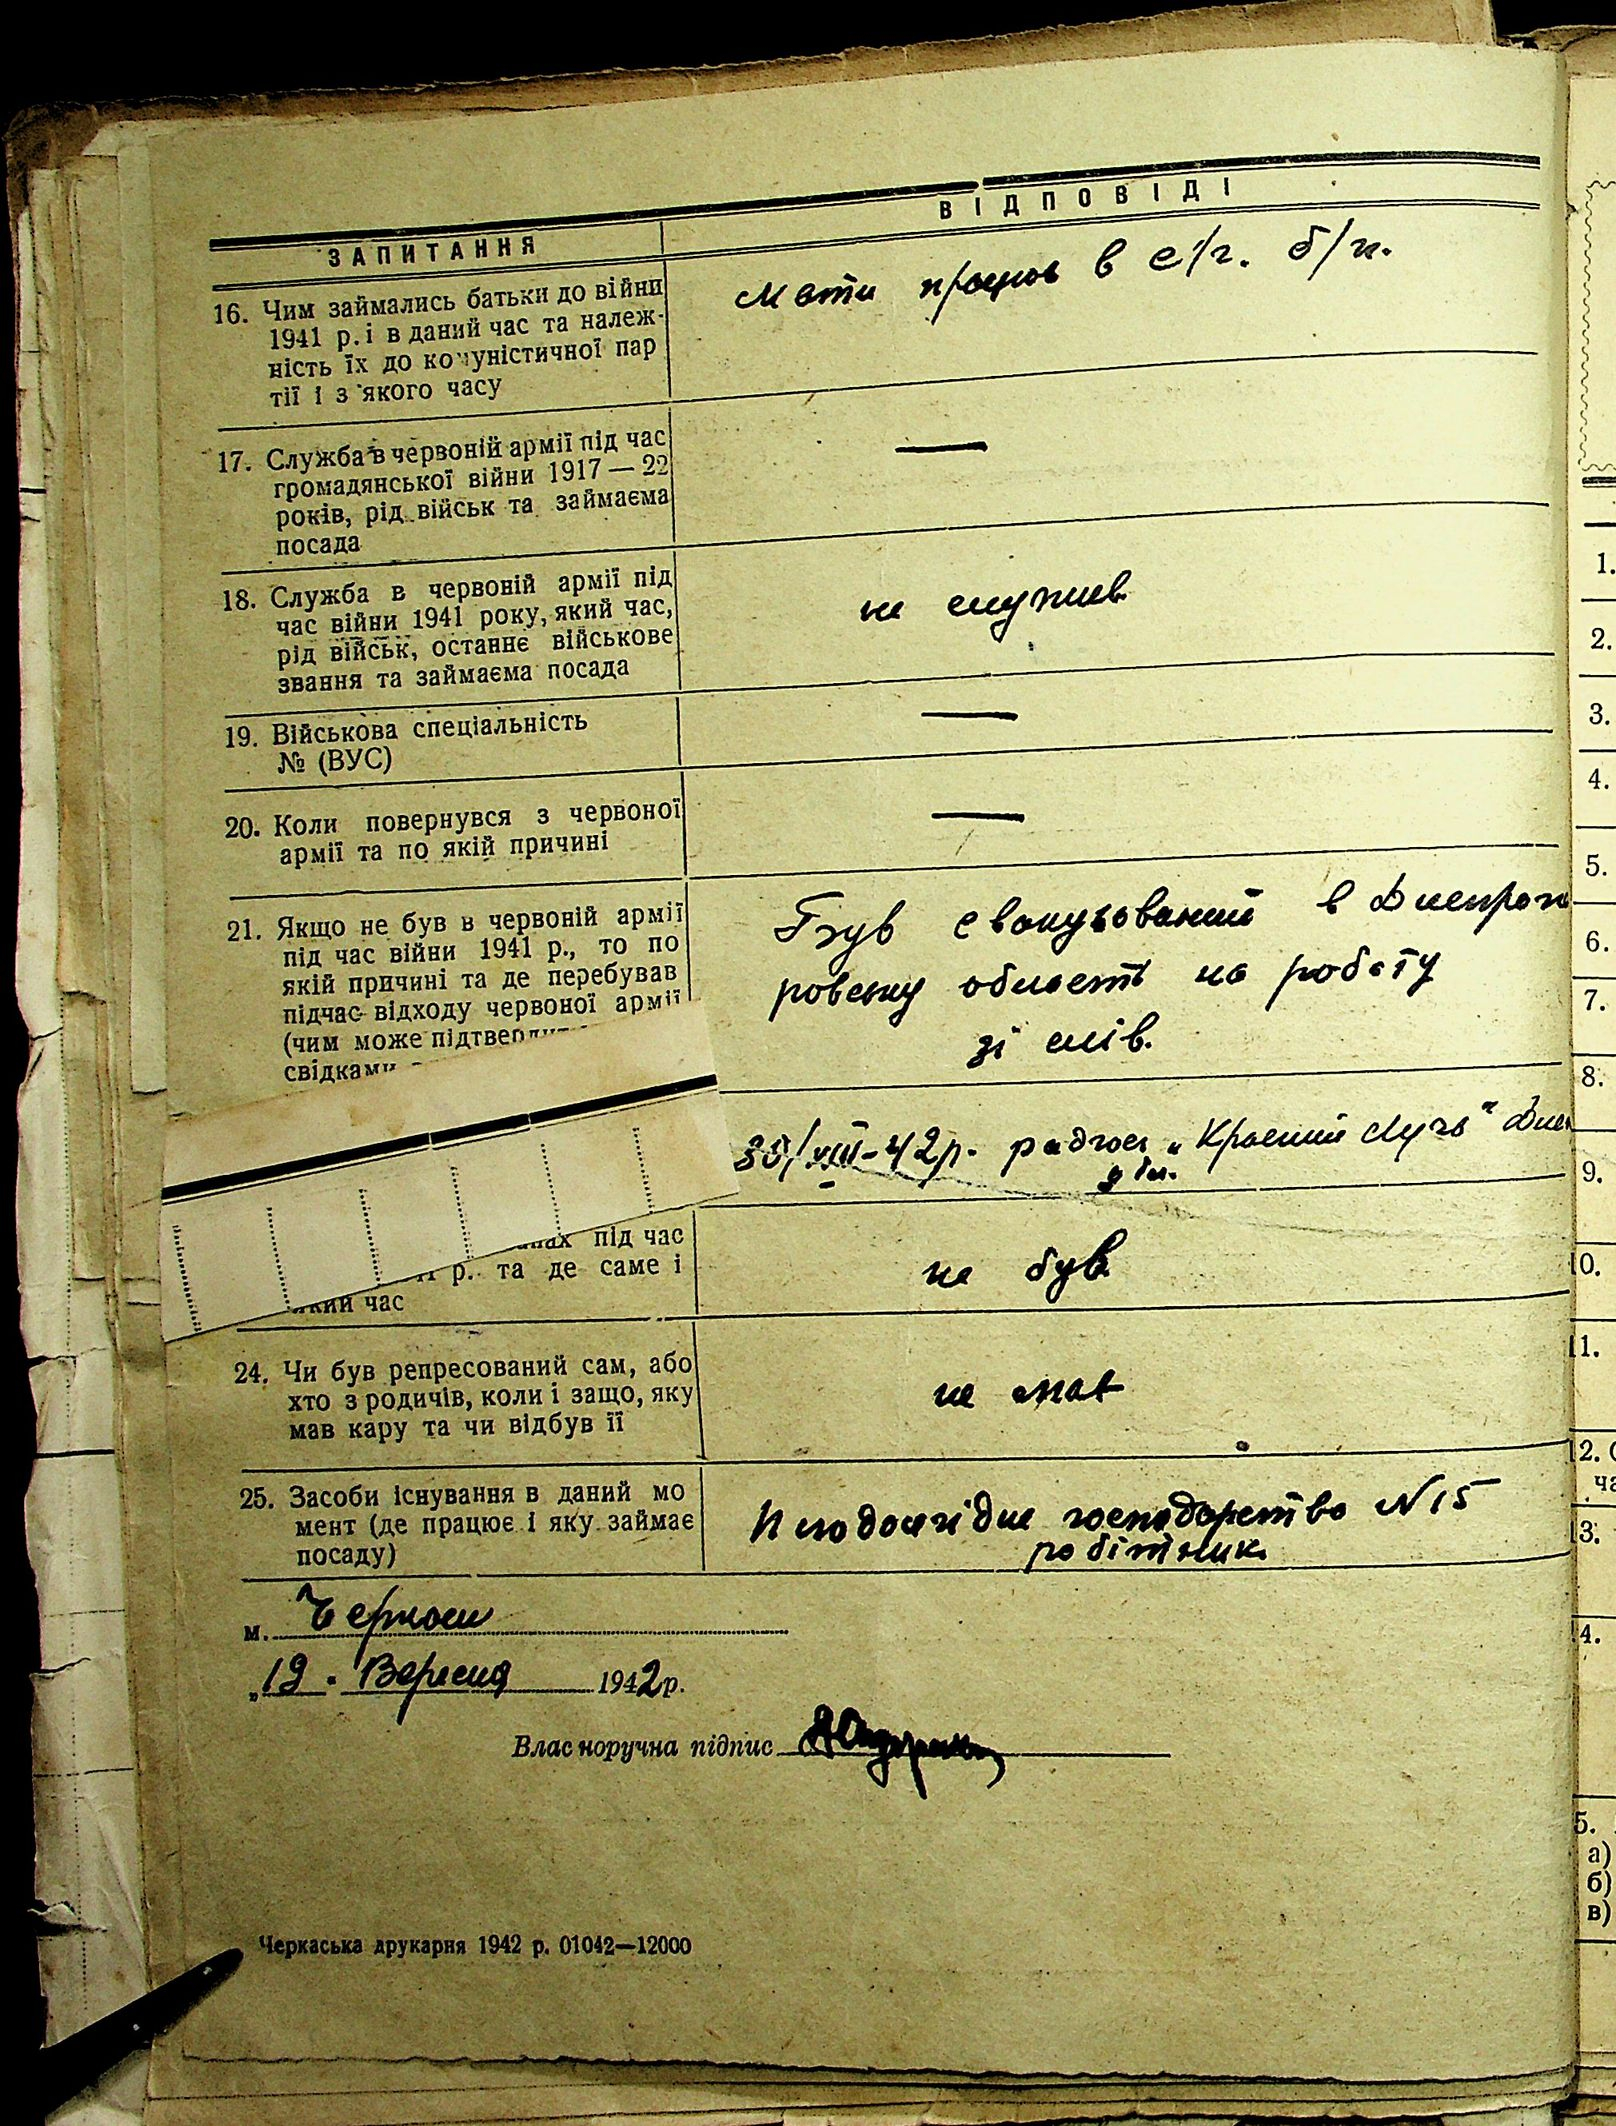 ЗАПИТАННЯ
ВІДПОВІДІ
16. Чим займались батьки до війни
1941 р. і в даний час та належ-
ність їх до комуністичної пар
тії і з якого часу
Мати працює в с/г. б/п.
17. Служба в червоній армії під час
громадянської війни 1917 — 22
років, рід військ та займаєма
посада
—
18. Служба в червоній армії під
час війни 1941 року, який час,
рід військ, останнє військове
звання та займаєма посада
не служив
19. Військова спеціальність
№ (ВУС)
—
20. Коли повернувся з червоної
армії та по якій причині
—
21. Якщо не був в червоній армії
під час війни 1941 р., то по
якій причині та де перебував
підчас відходу червоної армії
(чим може підтвердит
свідками
Був евакуований в Днепроп
ровську область на роботу
зі слів.
30/VIII-42р. радгосп „Красний Лучь" Дне
під час
р. та де саме і
який час
не був
24. Чи був репресований сам, або
хто з родичів, коли і защо, яку
мав кару та чи відбув її
не мав
25. Засоби існування в даний мо
мент (де працює і яку займає
посаду)
Плодоягідне господарство №15
робітник
м. Черкаси
„19" Вересня 1942 р.
Власноручна підпис
Черкаська друкарня 1942 р. 01042—12000
1.
2.
3.
4.
5.
6.
7.
8.
9.
10.
11.
12.
ча
13.
14.
5.
а)
б)
в)